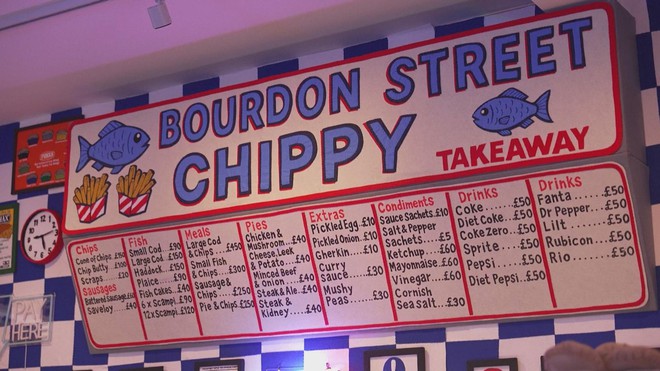 BOURDON STREET
CHIPPY
TAKEAWAY
Chips
Cone of Chips £50
Chip Butty £100
Scraps £20
Sausages
Battered Sausage £60
Saveloy £40
Fish
Small Cod £90
Large Cod £150
Haddock £150
Plaice £90
Fish Cakes £40
6 x Scampi £90
12 x Scampi £120
Meals
Large Cod
& Chips £450
Small Fish
& Chips £300
Sausage &
Chips £250
Pie & Chips £250
Pies
Chicken &
Mushroom £40
Cheese, Leek
& Potato £40
Minced Beef
& onion £40
Steak & Ale £40
Steak &
Kidney £40
Extras
Pickled Egg £10
Pickled Onion £10
Gherkin £10
Curry
Sauce £30
Mushy
Peas £30
Condiments
Sauce Sachets £10
Salt & Pepper
Sachets £5
Ketchup £60
Mayonnaise £60
Vinegar £60
Cornish
Sea Salt £30
Drinks
Coke £50
Diet Coke £50
Coke Zero £50
Sprite £50
Pepsi £50
Diet Pepsi £50
Drinks
Fanta £50
Dr Pepper £50
Lilt £50
Rubicon £50
Rio £50
PAY
HERE